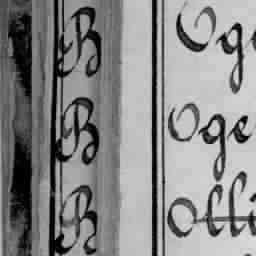 B Oge
B Oge
B Olli